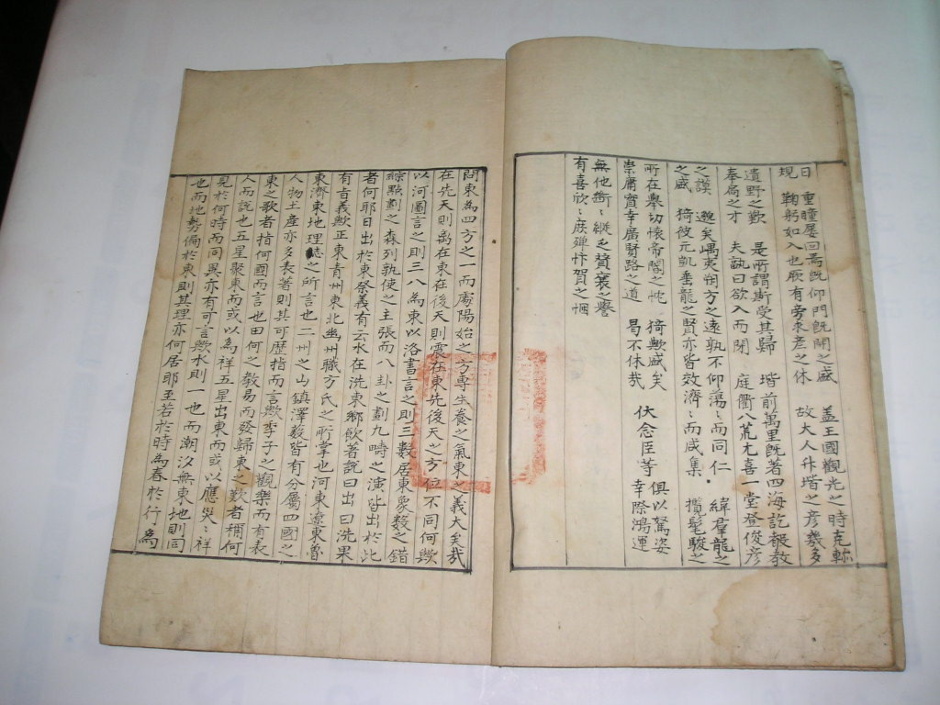 日　重瞳屡回焉既仰門既開之盛　盖王國觀光之時克軫
現　鞠躬如入也厥有旁求差之休　故大人升揩之彦羲多
遺野之歎　是所謂斯受其歸　揩前萬里既著四海訖報教
奉局之才　夫孰曰欲入而閉　庭衢八荒尤喜一堂登俊彦
之謨　邈矣嵎夷朔方之遠孰不仰蕩〻而同仁　緯羣龍之
之盛　猗彼元凱垂龍之賢亦皆效濟〻而咸集　攬髦駿之
所在舉切懷帝閽之忱　猗歟盛矣　俱以駑姿
崇庸實幸廣賢路之道　曷不休哉　伏念臣等　幸際鴻運
無他斷〻縱之賛襄之譽
有喜欣〻庶殫忭賀之悃
問東為四方之一而處陽始之方專生養之氣東之義大矣哉
在先天則离在東在後天則震在東先後天之方位不同何歟
以河圖言之則三八為東以洛書言之則三數居東象數之錯
綜點劃之森列孰使之主張而八卦之劃九疇之演皆出於此
者何耶日出於東祭義有云水在洗東鄉飲著說曰出曰洗果
有旨義歟正東青州東北幽州職方氏之所掌也河東梁東魯
東濟東地理誌之所言也二州之山鎮澤藪皆有分屬四國之
人物土産亦多表著則其可歷指而言歟季子之觀樂而有表
東之歌者指何國而言也田何之教易而發歸東之歎者稱何
人而說也五星聚東而或以為祥五星出東而或以應災〻祥
見於何時而同異亦有可言歟水則一也而潮汐無東地則同
也而地勢偏於東則其理亦何居耶至若於時為春於行為